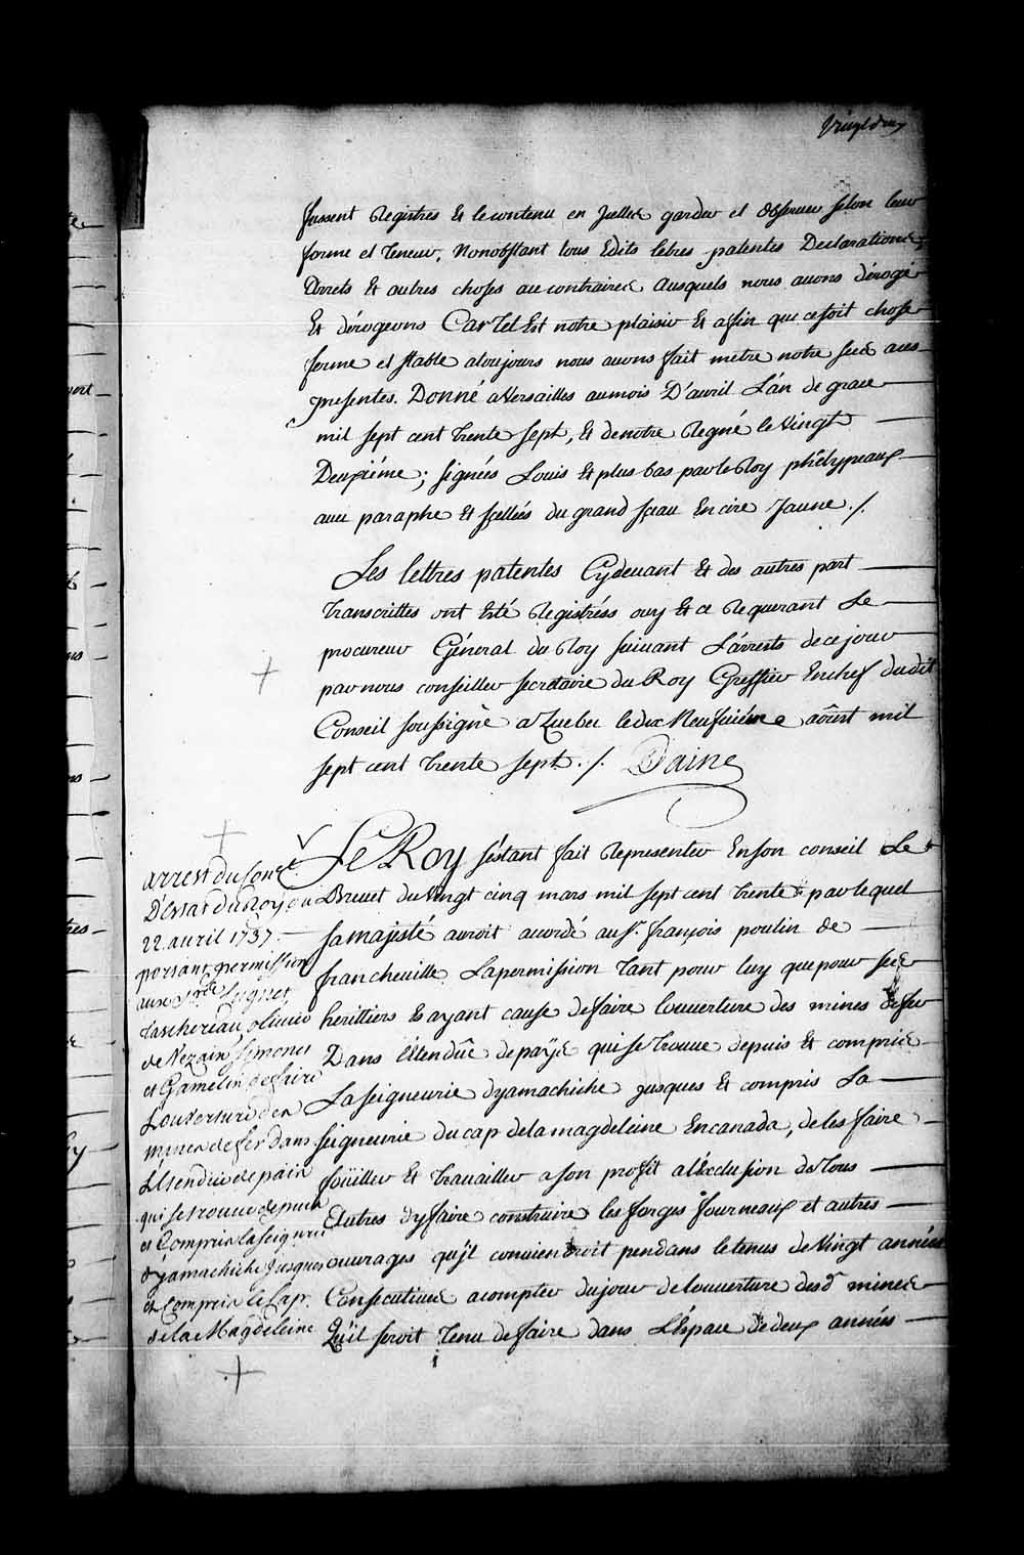 Vingt deux
fussent Registrés Et le contenu en Jcelles garder et observer selon leur
forme et teneur, Nonobstant tous Edits lettres patentes Declarations
Arrets Et autres choses aucontraires Ausquels nous avons dérogé
Et dérogeons Car Tel Est notre plaisir Et afin que ce soit chose
ferme et stable atoujours nous avons fait metre notre scel aces
presentes. Donné a Versailles aumois D'avril L'an de grace
mil sept cent trente sept, Et denotre Regne le Vingt
Deuxiéme; signées Louis Et plus bas par le Roy phélypeaux
avec paraphe Et scellées du grand sceau En cire Jaune ./.
Les lettres patentes Cydevant Et des autres part
transcrittes ont Esté Registrées ouy Et ce Requerant Le
procureur Général du Roy suivant L'arrests de ce jour
par nous conseiller secretaire du Roy Greffier En chef dudit
Conseil soussigné a Quebec le dix Neufviéme aoust mil
sept cent trente sept ./. Daine
Le Roy s'estant fait Representer En son conseil Le
Brevet du Vingt cinq mars mil sept cent trente par lequel
sa majesté auroit accordé au Sr. françois poulin de
francheville La permission tant pour luy que pour ses
herittiers Et ayant cause de faire l'ouverture des mines de fer
Dans L'étendüe de païs qui se trouve depuis Et compris
La seigneurie dyamachiche jusques Et compris La
seigneurie du cap de la magdeleine En canada, de les faire
foüiller Et travailler a son profit a l'Exclusion de tous
Autres d'y faire construire les forges fourneaux et autres
ouvrages qu'jl conviendroit pendans le tems de Vingt années
Consecutives a compter du jour de l'ouverture desd. mines
Qu'il seroit tenu de faire dans L'Espace de deux années
arrest du Conel.
D'Estat du Roy du
22. avril 1737.
portant permission
aux Srs
taschereau olivier
de Vezain Simonet
et Gamelin de faire
L'ouverture des
mines de fer dans
L'Etendüe de païs
qui se trouve depuis
et Compris la seigrie
dyamachiche jusques
et Compris le Cap
de la Magdeleine